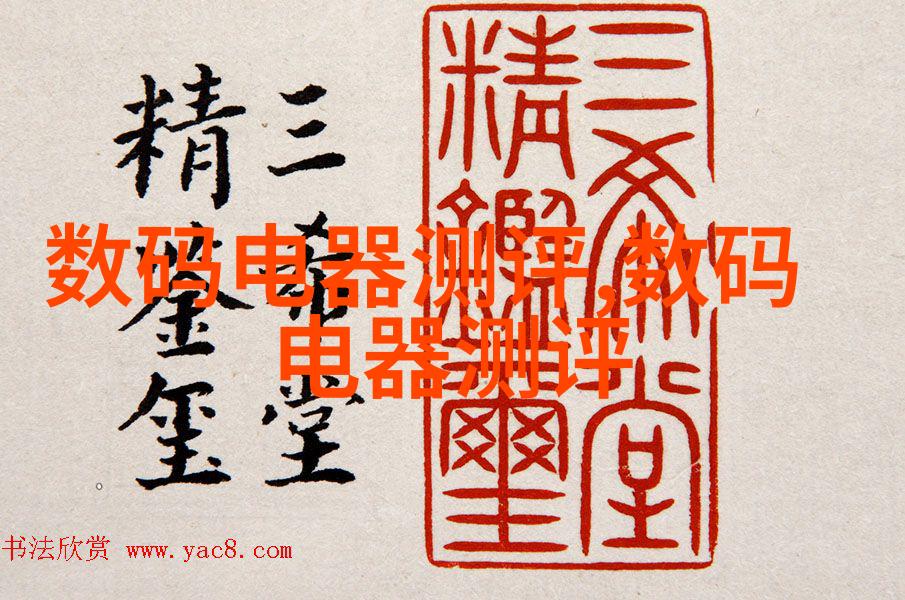 三希堂
精鉴玺
三希堂
精鑑璽
数码电器测评,数码
电器测评
书法欣赏 www.yac8.com